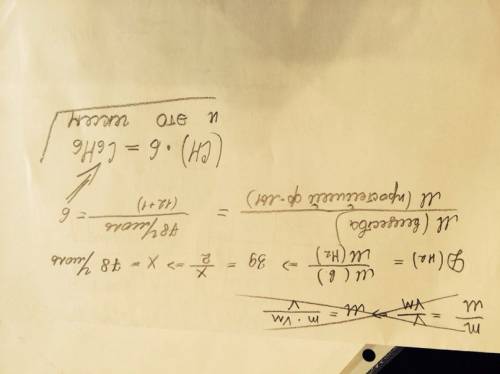 m/M = V/Vm => M = m · Vm / V
D(H2) = M(в)/M(H2) => 39 = x/2 => x = 78 г/моль
M(вещества)/M(простейшей ф-лы) = 78 г/моль/(12+1) = 6
(CH) · 6 = C6H6
и это гексен